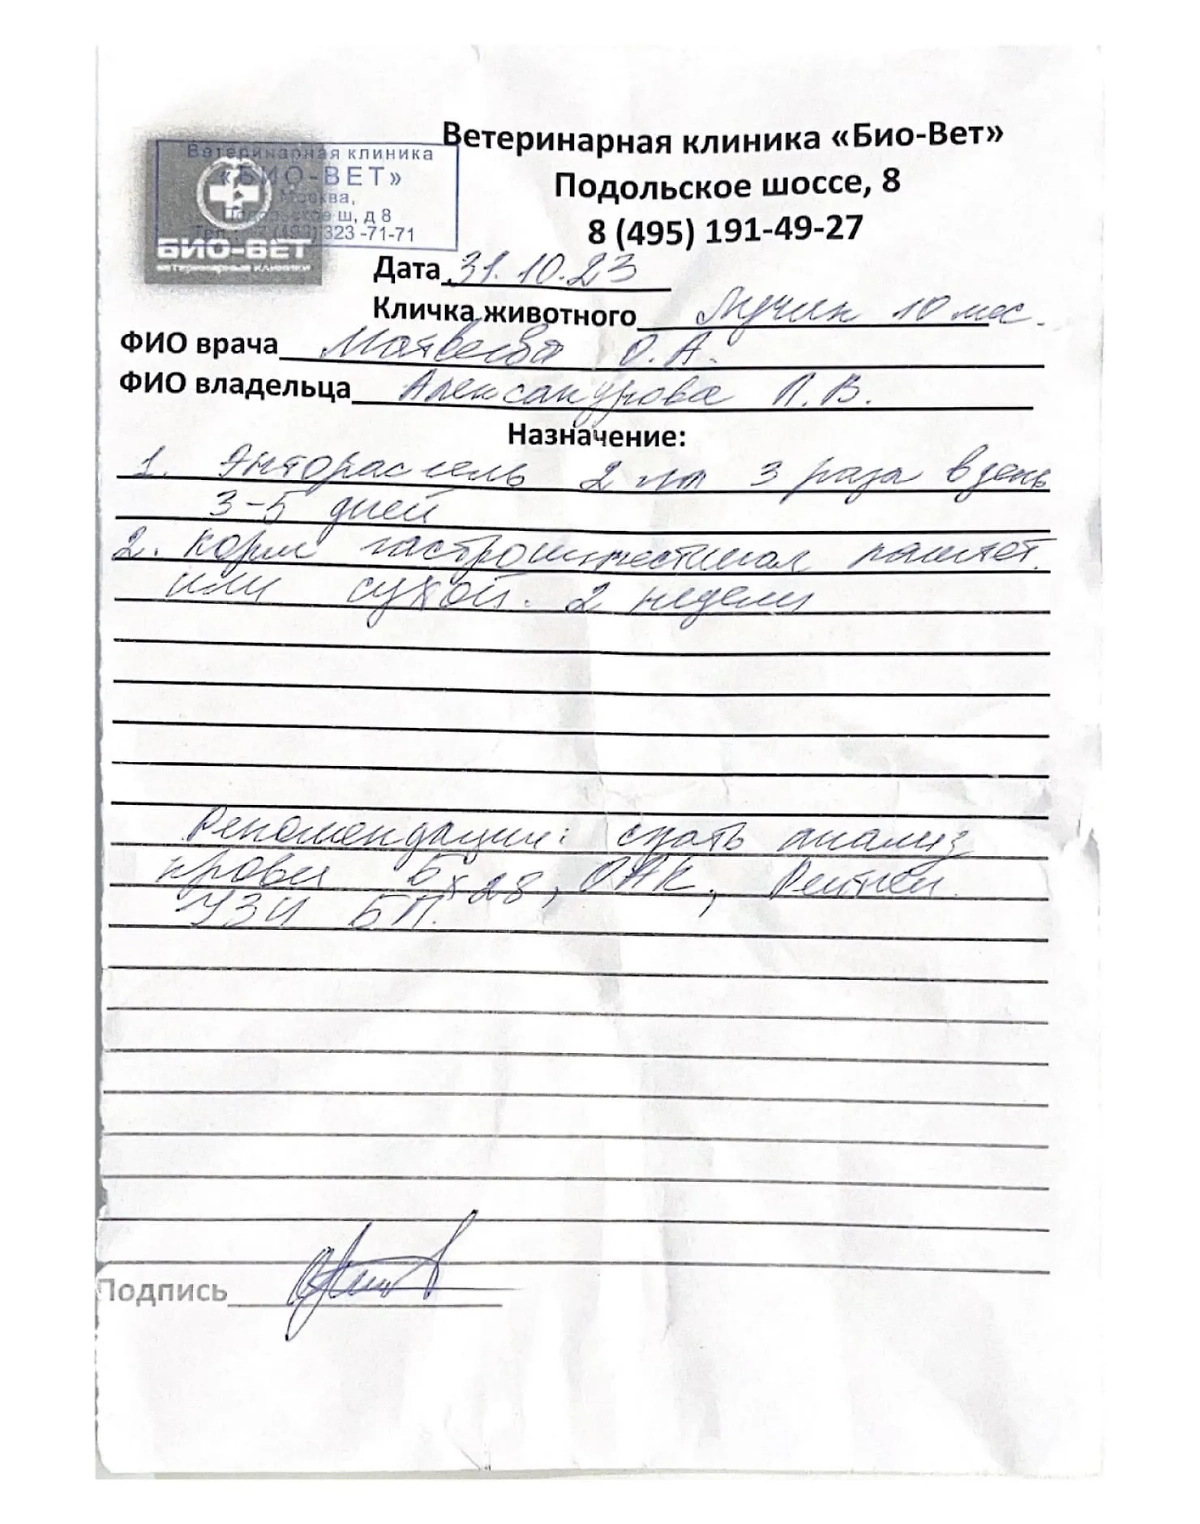 Ветеринарная клиника «Био-Вет»
Подольское шоссе, 8
8 (495) 191-49-27
Ветеринарная клиника
«БИО-ВЕТ»
Москва,
Подольское ш, д 8
323 -71-71
БИО-ВЕТ
ветеринарные клиники
Дата 31.10.23
Кличка животного 10 мес.
ФИО врача Матвеева О.А.
ФИО владельца Александрова П.В.
Назначение:
1. Энторасгель 2 мл 3 раза в день
3-5 дней
2. Корм гастроинтестинал паштет.
или сухой. 2 недели
Рекомендации: сдать анализ
крови Бх28, ОАК,
УЗИ БП.
Подпись